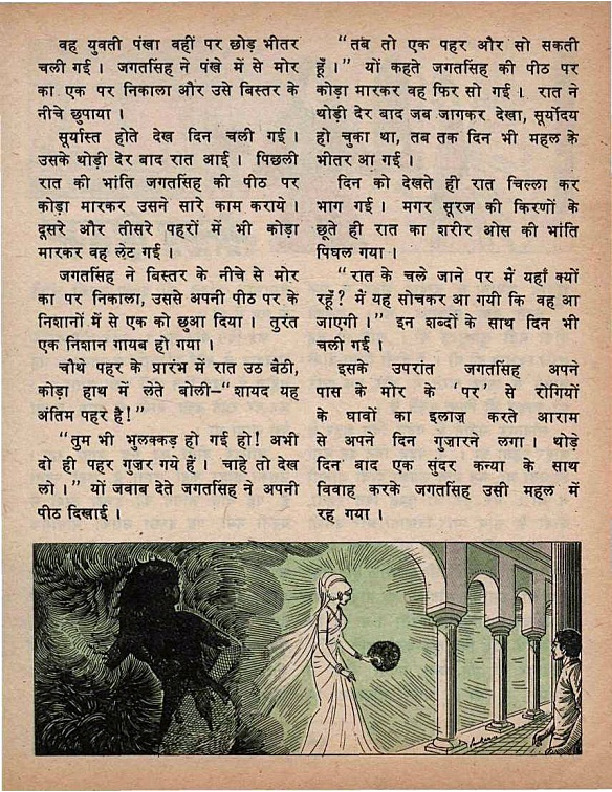 वह युवती पंखा वहीं पर छोड़ भीतर
चली गई । जगतसिंह ने पंखे में से मोर
का एक पर निकाला और उसे बिस्तर के
नीचे छुपाया ।
सूर्यास्त होते देख दिन चली गई ।
उसके थोड़ी देर बाद रात आई । पिछली
रात की भांति जगतसिंह की पीठ पर
कोड़ा मारकर उसने सारे काम कराये ।
दूसरे और तीसरे पहरों में भी कोड़ा
मारकर वह लेट गई ।
जगतसिंह ने बिस्तर के नीचे से मोर
का पर निकाला, उससे अपनी पीठ पर के
निशानों में से एक को छुआ दिया । तुरंत
एक निशान गायब हो गया ।
चौथे पहर के प्रारंभ में रात उठ बैठी,
कोड़ा हाथ में लेते बोली–"शायद यह
अंतिम पहर है!"
"तुम भी भुलक्कड़ हो गई हो! अभी
दो ही पहर गुजर गये हैं । चाहे तो देख
लो ।" यों जवाब देते जगतसिंह ने अपनी
पीठ दिखाई ।
"तब तो एक पहर और सो सकती
हूँ ।" यों कहते जगतसिंह की पीठ पर
कोड़ा मारकर वह फिर सो गई । रात ने
थोड़ी देर बाद जब जागकर देखा, सूर्योदय
हो चुका था, तब तक दिन भी महल के
भीतर आ गई ।
दिन को देखते ही रात चिल्ला कर
भाग गई । मगर सूरज की किरणों के
छूते ही रात का शरीर ओस की भांति
पिघल गया ।
"रात के चले जाने पर मैं यहाँ क्यों
रहूँ? मैं यह सोचकर आ गयी कि वह आ
जाएगी ।" इन शब्दों के साथ दिन भी
चली गई ।
इसके उपरांत जगतसिंह अपने
पास के मोर के 'पर' से रोगियों
के घावों का इलाज़ करते आराम
से अपने दिन गुजारने लगा । थोड़े
दिन बाद एक सुंदर कन्या के साथ
विवाह करके जगतसिंह उसी महल में
रह गया ।